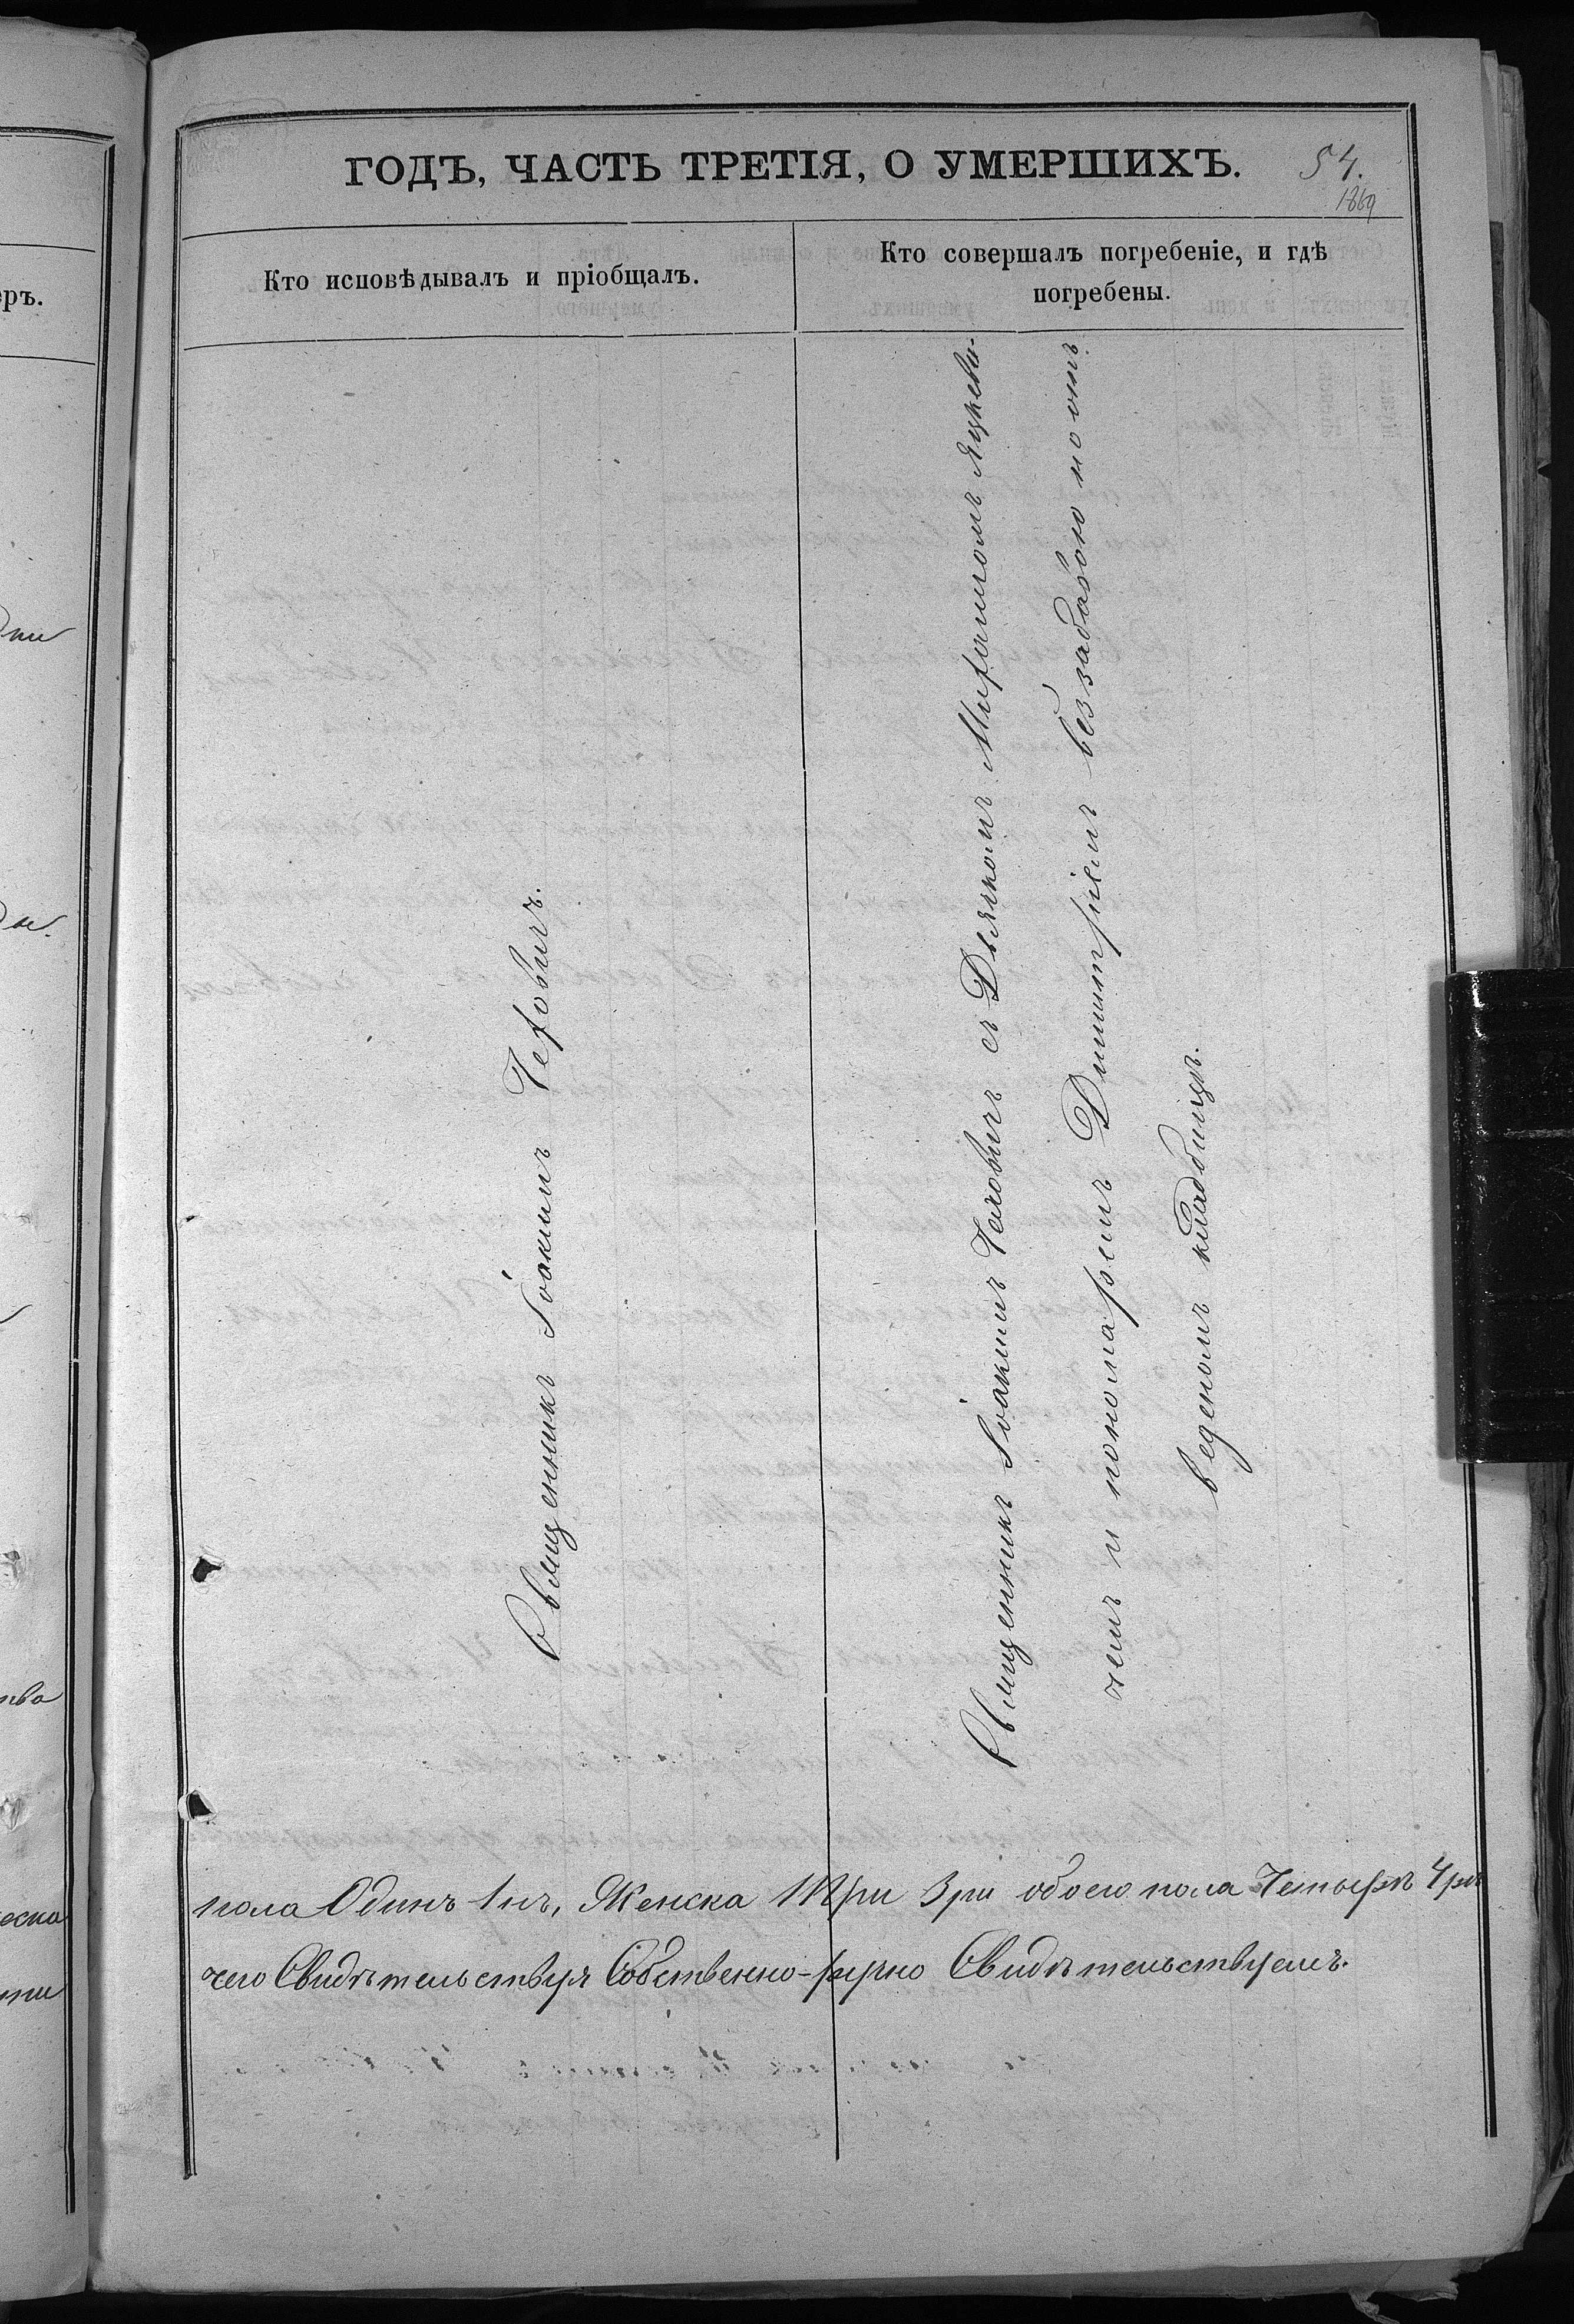 ГОДЪ, ЧАСТЬ ТРЕТІЯ, О УМЕРШИХЪ.
54.
1869
Кто исповѣдывалъ и пріобщалъ.
Кто совершалъ погребеніе, и гдѣ
погребены.
Священникъ Іоакимъ Чеховичъ.
Священникъ Іоакимъ Чеховичъ съ Дьячкомъ Митрофаномъ Яцкеви-
чемъ и пономаремъ Димитріемъ на отв
веденомъ кладбищѣ.
пола Одинъ 1нъ, Женска Три 3ри обоего пола Четыре 4ре
чего Свидѣтельствуя Собственно-ручно Свидѣтельствуемъ.
еръ.